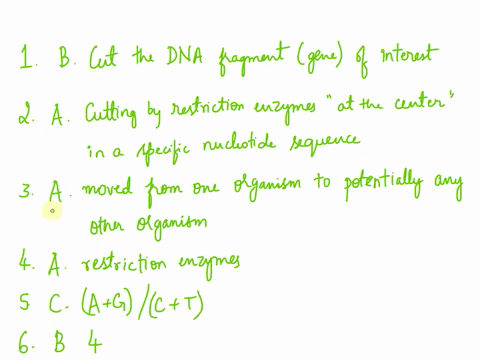 1. B. Cut the DNA fragment (gene) of interest
2. A. Cutting by restriction enzymes "at the center"
in a specific nucleotide sequence
3. A. moved from one organism to potentially any
other organism
4. A. restriction enzymes
5 C. (A+G)/(C+T)
6. B 4